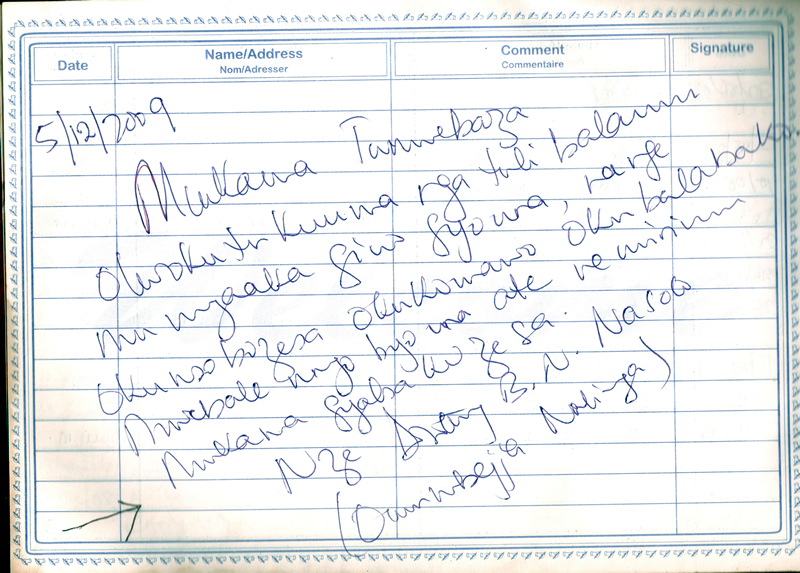 Date
Name/Address
Nom/Adresser
Comment
Commentaire
Signature
5/12/2009
Mukama Tumwebaza
Okutukuuma nga tuli balamu
mu myaka gino gyonna, nange
okunsobozesa okukomawo okubalabako.
Mwebale nnyo byonna ate ne mirimu
Mukama gyabakozesa.
Nze B. N. Nasolo
(Omumbejja Nalinya)